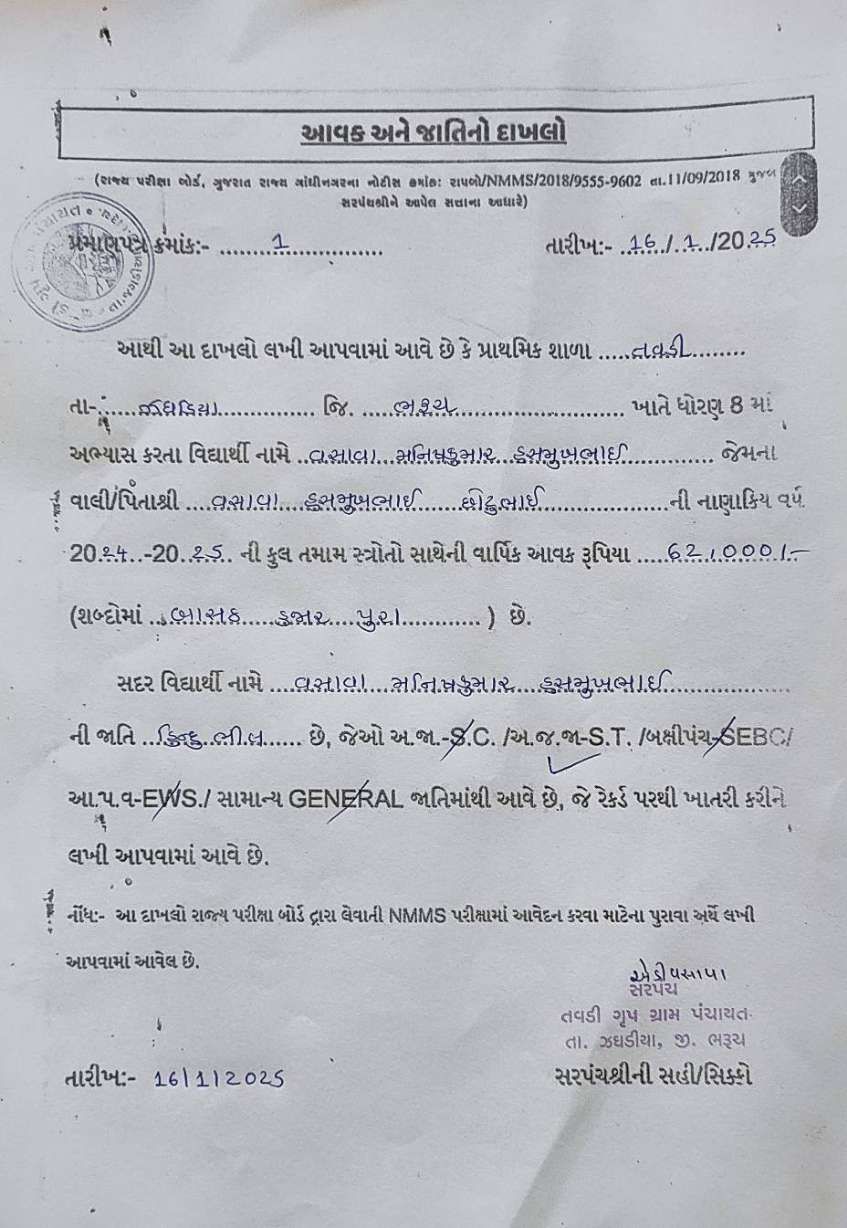 આવક અને જાતિનો દાખલો
(રાજ્ય પરીક્ષા બોર્ડ, ગુજરાત રાજ્ય ગાંધીનગરના નોટીસ ક્રમાંક: રાપબો/NMMS/2018/9555-9602 તા.11/09/2018 મુજબ
સરપંચશ્રીને આપેલ સત્તાના આધારે)
પ્રમાણપત્ર ક્રમાંક:- ........1........................ તારીખ:- ..16../..1../2025
આથી આ દાખલો લખી આપવામાં આવે છે કે પ્રાથમિક શાળા .....તવડી........
તા-......ઝઘડિયા.............. જિ. .....ભરૂચ......................... ખાતે ધોરણ 8 માં
અભ્યાસ કરતા વિદ્યાર્થી નામે ..વસાવા...મનિષકુમાર...હસમુખભાઈ............. જેમના
વાલી/પિતાશ્રી ....વસાવા....હસમુખભાઈ......છોટુભાઈ....................ની નાણાકિય વર્ષ
2024..-2025.. ની કુલ તમામ સ્ત્રોતો સાથેની વાર્ષિક આવક રૂપિયા .....62,000/-
(શબ્દોમાં ...બાસઠ.....હજાર....પુરા............ ) છે.
સદર વિદ્યાર્થી નામે ....વસાવા...મનિષકુમાર....હસમુખભાઈ..................
ની જાતિ ..હિન્દુ..ભીલ...... છે, જેઓ અ.જા.-S.C. /અ.જ.જા-S.T. /બક્ષીપંચ-SEBC/
આ.પ.વ-EWS./ સામાન્ય GENERAL જાતિમાંથી આવે છે, જે રેકર્ડ પરથી ખાતરી કરીને
લખી આપવામાં આવે છે.
નોંધ:- આ દાખલો રાજ્ય પરીક્ષા બોર્ડ દ્વારા લેવાતી NMMS પરીક્ષામાં આવેદન કરવા માટેના પુરાવા અર્થે લખી
આપવામાં આવેલ છે.
સરપંચ
તવડી ગૃપ ગ્રામ પંચાયત
તા. ઝઘડીયા, જી. ભરૂચ
તારીખ:- 16/1/2025 સરપંચશ્રીની સહી/સિક્કો